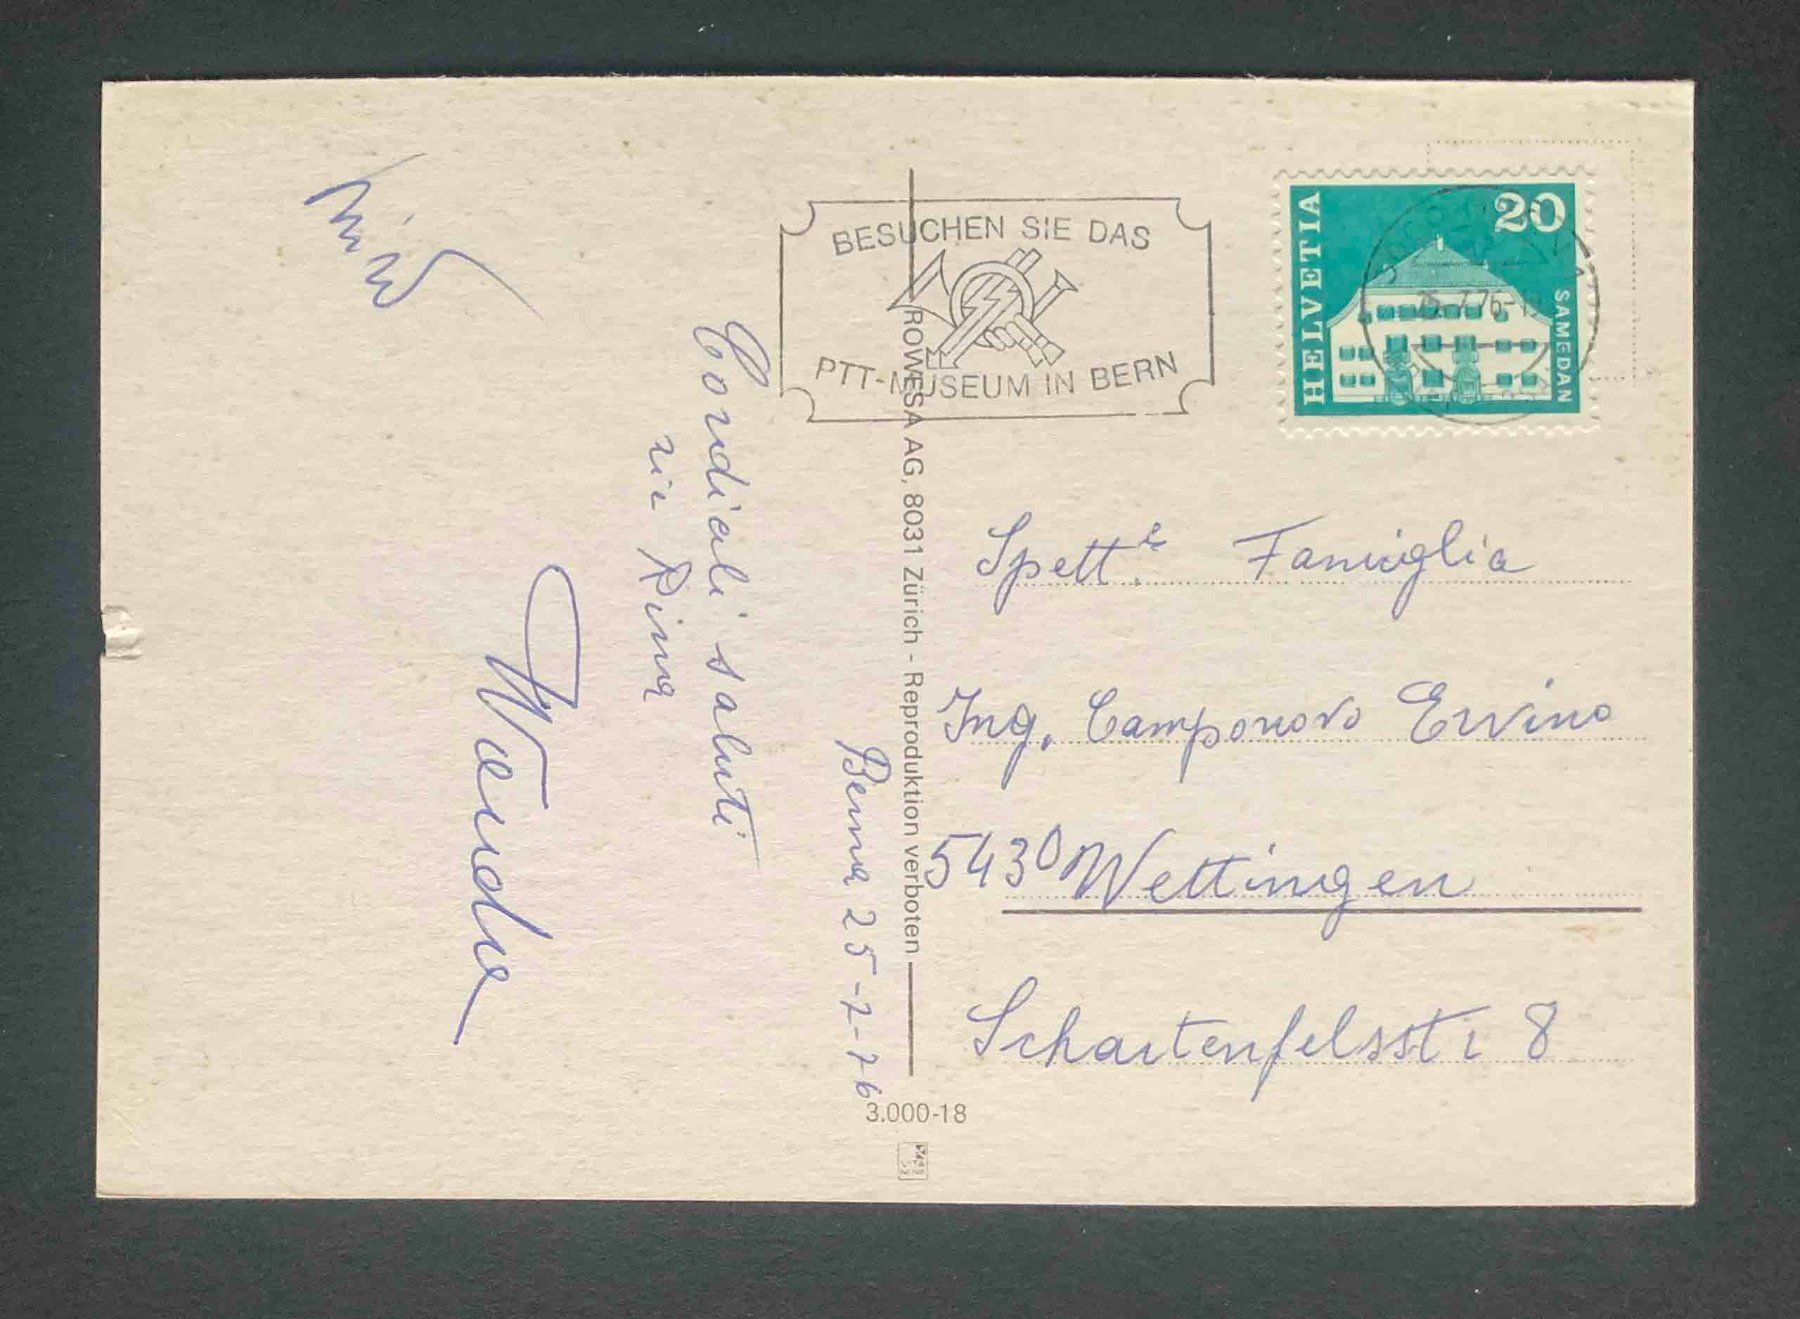 BESUCHEN SIE DAS
PTT-MUSEUM IN BERN
HELVETIA
20
SAMEDAN
25.7.76-19
Berna 25-7-76
Cordiali saluti
zia Rina
Wanda
Spett.le Famiglia
Ing. Camponovo Ervino
5430 Wettingen
Schartenfelsstr 8
ROWESA AG, 8031 Zürich - Reproduktion verboten
3.000-18